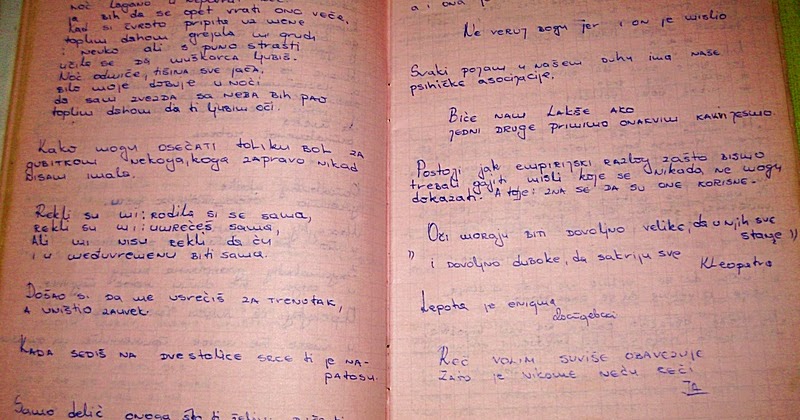 Noć lagano u
ja bih da se opet vrati ono veče,
kad si čvrsto pripito uz mene
toplim dahom grejala mi grudi
i nevno ali s puno strasti
učile se da muškarca ljubiš.
Noć odmiče, tišina sve jača,
bilo moje dobuje u noći
da sam zvezda sa neba bih pao
toplim dahom da ti ljubim oči.
Kako mogu osećati toliku bol za
gubitkom nekoga, koga zapravo nikad
nisam imala.
Rekli su mi: rodila si se sama,
rekli su mi: umrećeš sama,
Ali mi nisu rekli da ću
i u međuvremenu biti sama.
Došao si da me usrećiš za trenutak,
a uništio zauvek.
Kada sediš na dve stolice srce ti je na-
patosu.
Samo delić onoga što ti želim
a i ona je
Ne veruj bogu jer i on je mislio
Svaki pojam u našem duhu ima naše
psihičke asocijacije.
Biće nam lakše ako
jedni druge primimo onakvim kakvi jesmo.
Postoji jak empirijski razlog zašto bismo
trebali gajiti misli koje se nikada ne mogu
dokazati. A to je: zna se da su one korisne.
Oči moraju biti dovoljno velike, da u njih sve
stane"
" i dovoljno duboke, da sakriju sve
Kleopatra
Lepota je enigma
Reč volim suviše obavezuje
zato je nikome neću reći
JA